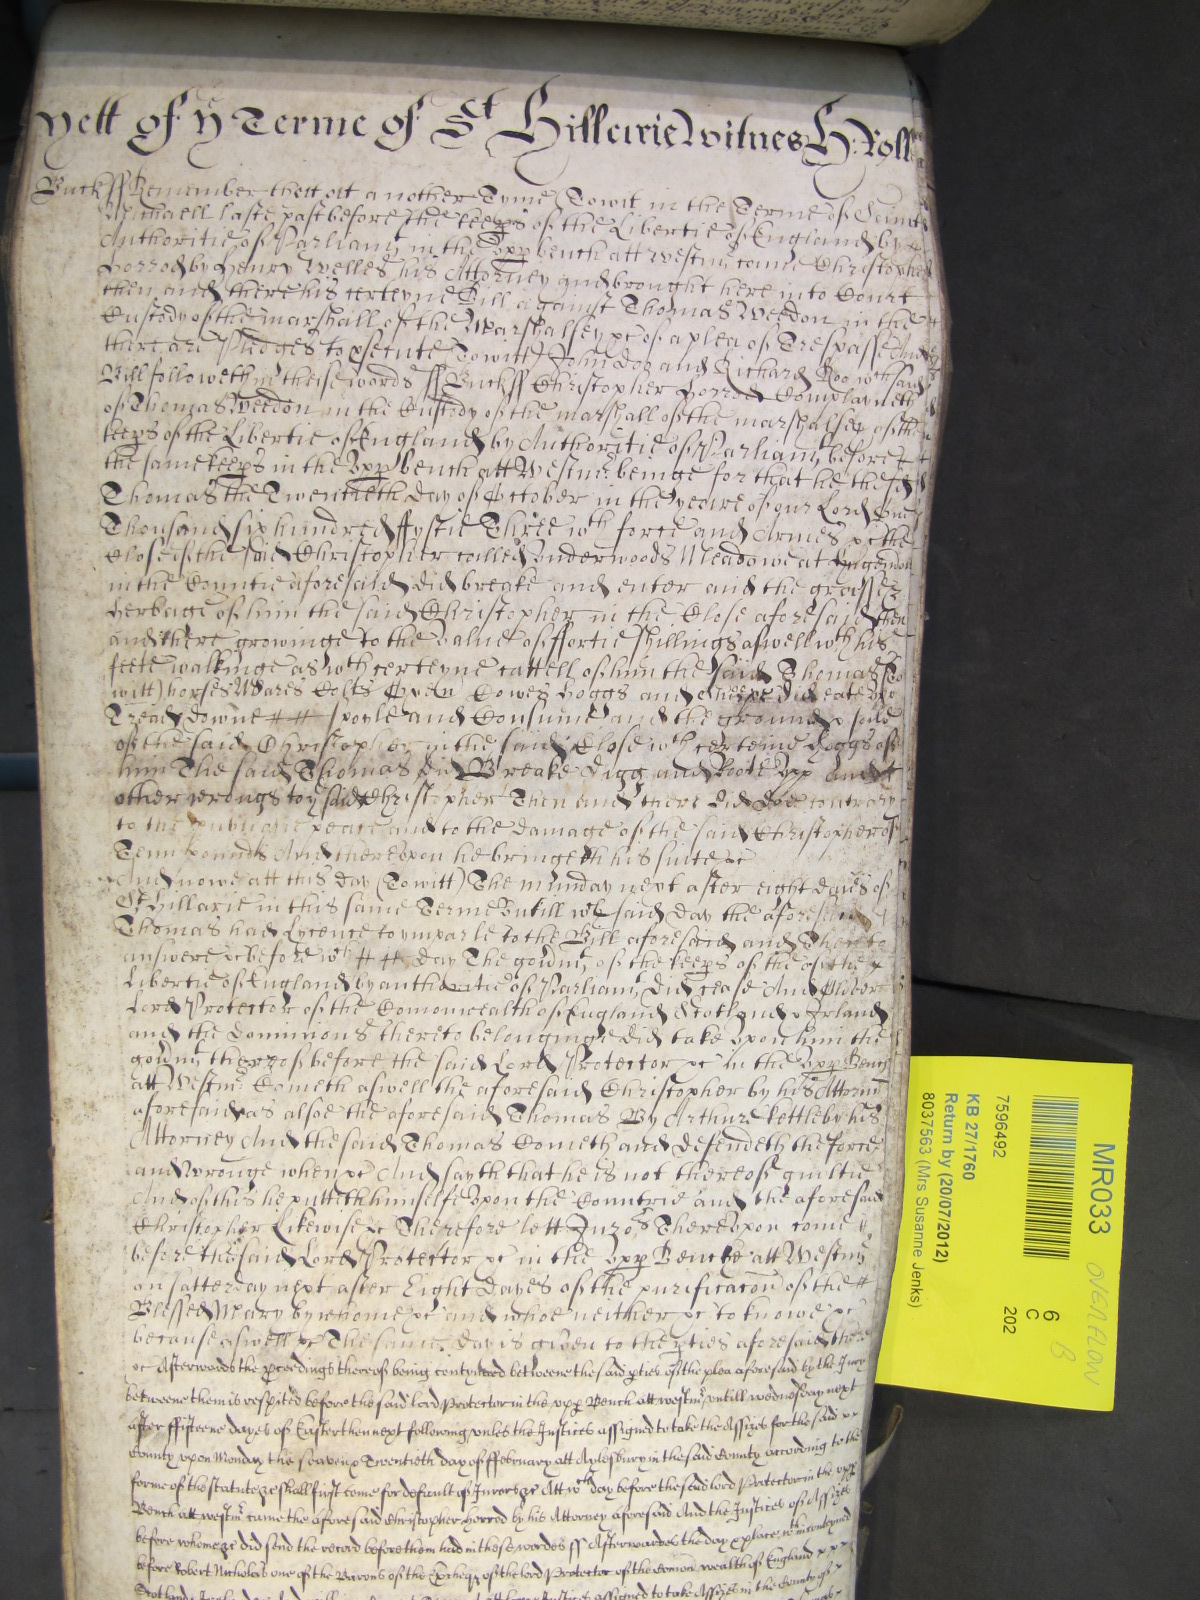 yett of yͤ Terme of Sͭ Hillarie Witnes H: Roll
Buck ſſ Remember that att another Tyme (Towit in the Terme of Saint
Michaell last past before the keeps of the Libertie of England by
Authoritie of Parliamᵗ in the upp bench att Westmʳ came Christopher
Horrod by Henry Welles his Attorney and brought here into Court
then and there his certeyne Bill against Thomas Weedon in the
Custody of the marshall of the Marshalsey &c of a plea of Trespasse And
there are Pledges to psecute Towitt) John Doo and Richard Roo wᶜʰ said
Bill followeth in theise words ſſ Buck ſſ Christopher Horrod Complayneth
of Thomas Weedon in the Custody of the marshall of the marshalsey of the
keeps of the Libertie of England by Authoritie of Parliamᵗ before
the same keeps in the upp bench att Westmʳ beinge for that he the sᵈ
Thomas the Twentieth day of October in the yeare of our Lord One
Thousand six hundred ffystie Three wᵗʰ force and Armes &c the
Close of the said Christopher called Underwoods Meadowe at
in the Countie aforesaid did breake and enter and the grasse &
herbage of him the said Christopher in the Close aforesaid then
and there growinge to the value of ffortie shillings aswell wᵗʰ his
feete walkinge as wᵗʰ certeyne cattell of him the said Thomas (To
witt) horses Mares Colts Oxen Cowes hoggs and did eate upp
Tread downe spoyle and Consume and the ground & soile
of the said Christopher in the said Close wᵗʰ certeine hoggs of
him The said Thomas did Breake digg and Roote upp And
other wrongs to yͤ said Christopher Then and there did doe contrary
to the publique peace and to the damage of the said Christopher of
Tenn pounds And thereupon he bringeth his suite &c
And nowe att this day (Towitt) The munday next after eight dayes of
Sͭ Hillarie in this same Terme Untill wᶜʰ said day the aforesaid
Thomas had Lycence to imparle to the Bill aforesaid and Then to
answere &c before wᶜʰ day The govmᵗ of the keeps of the of the
Libertie of England by authoritie of Parliamᵗ did cease And Oliver
Lord Protector of the Comonwealth of England Scotland & Irland
and the dominions thereto belonginge did take upon him the
govmᵗ thereof before the said Lord Protector &c in the upp Bench
att Westmʳ Cometh aswell the aforesaid Christopher by his Attorny
aforesaid as alsoe the aforesaid Thomas By Arthure Kettleby his
Attorney And the said Thomas Cometh and defendeth the force
and wronge when &c And sayth that he is not thereof guiltie
And of this he putteth himselfe Upon the Countrie and the aforesaid
Christopher Likewise &c Therefore lett Thereupon come
before the said Lord Protector &c in the upp Bench att Westmʳ
on satterday next after Eight dayes of the purificacon of the
Blessed Mary by whome &c and whoe neither &c to knowe &c
because aswell &c The same day is given to the pties aforesaid there
&c Afterwards the pceedings thereof being contynued betweene the said pties of the plea aforesaid by the Jury
betweene them is respited before the said lord Protector in the upp Bench att westmʳ untill wednesday next
after ffifteene dayes of Easter then next following unles the Justices assigned to take the Assizes for the said
County upon Monday the seaven & Twentieth day of ffebruary att Aylesbury in the said County according to the
forme of the statute &c shall first come for default of Jurors &c Att wᶜʰ day before the said lord Protector in the upp
Bench att westmʳ came the aforesaid Christopher Horrod by his Attorney aforesaid And the Justices of Assizes
before whome &c did send the record before them had in these wordes ſſ Afterwardes the day & place within conteyned
before Robert Nicholas one of the Barons of the Excheqr of the lord Protector of the Comon wealth of England
Justices assigned to take Assizes in the County of
MR033
overflow
B
6
C
202
7596492
KB 27/1760
Return by (20/07/2012)
8037563 (Mrs Susanne Jenks)